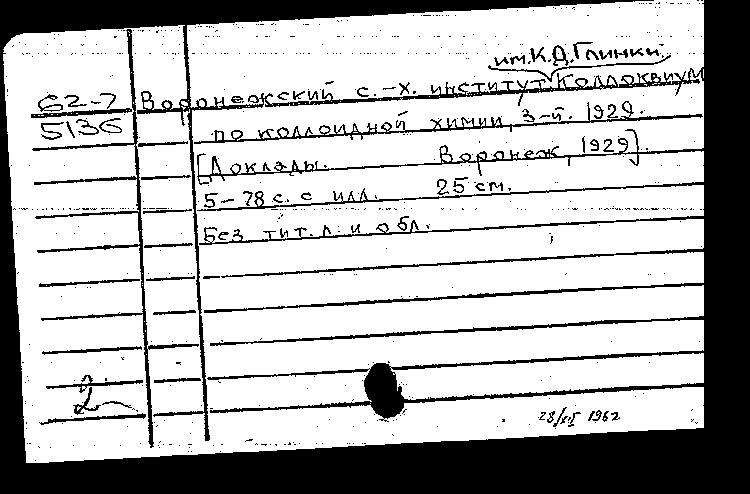 им. К. Д. Глинки.
62-7 Воронежский с.-х. институт. Коллоквиум
5136 по коллоидной химии, 3-й. 1929.
[Доклады. Воронеж, 1929].
5-78 с. с илл. 25 см.
Без тит. л. и обл.
2
28/XII 1962